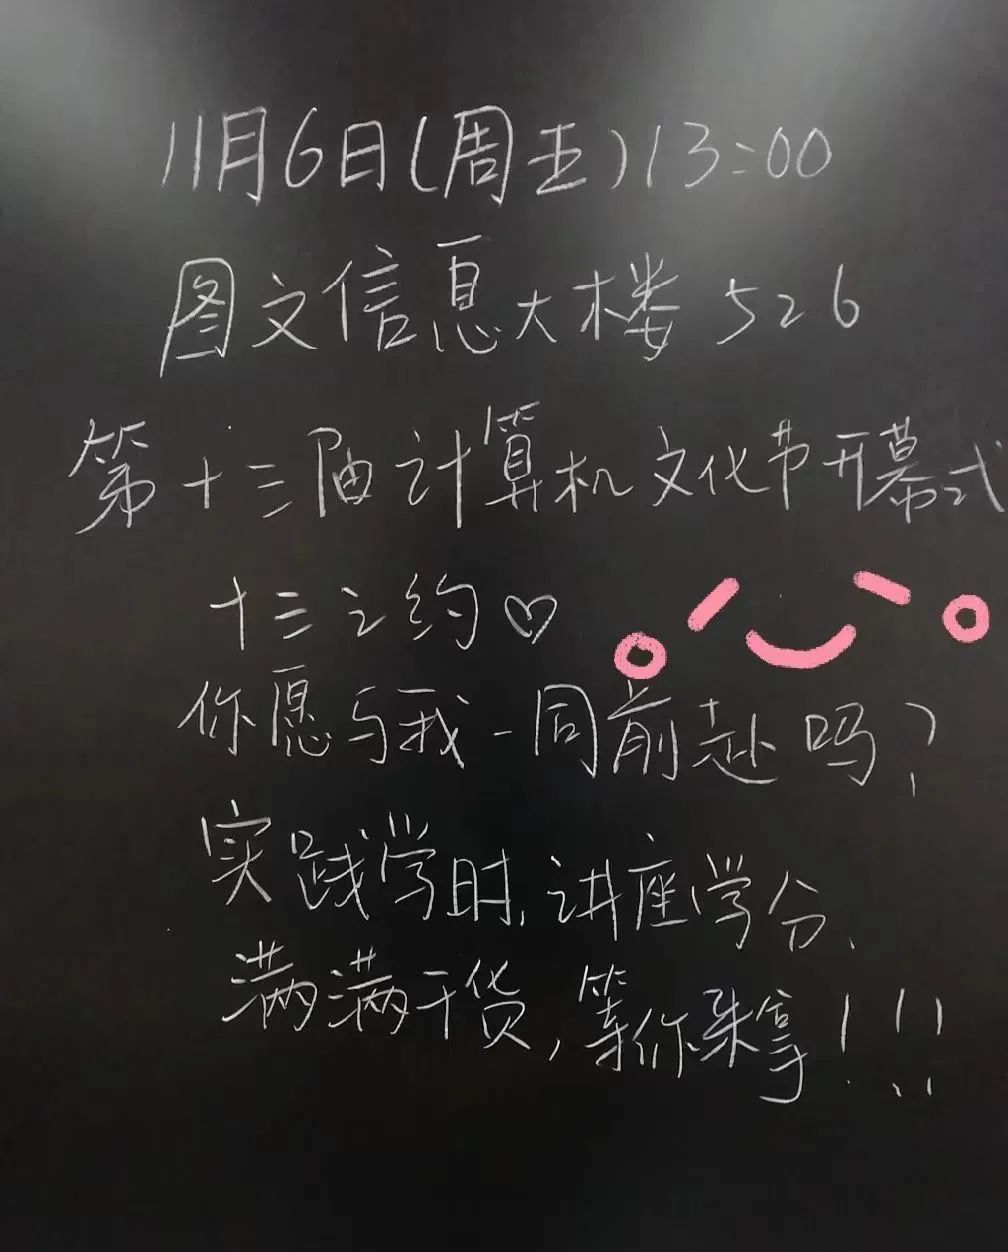 11月6日(周五)13:00
图文信息大楼526
第十三届计算机文化节开幕式
十三之约♡
你愿与我一同前赴吗?
实践学时,讲座学分,
满满干货,等你来拿!!!